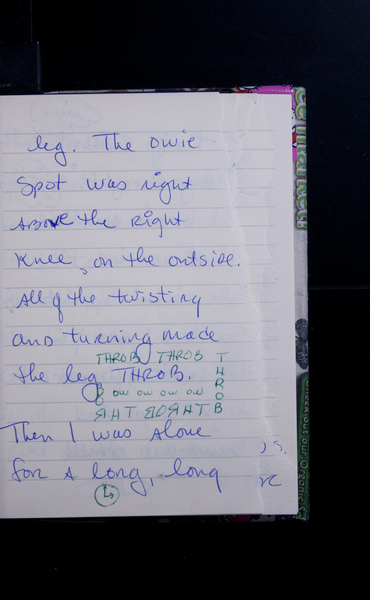 leg. The owie
spot was right
above the right
knee, on the outside.
All of the twisting
and turning made
THROB THROB T
the leg THROB. H
R
B ow ow ow ow O
THROB THROB
Then I was alone
for a long, long